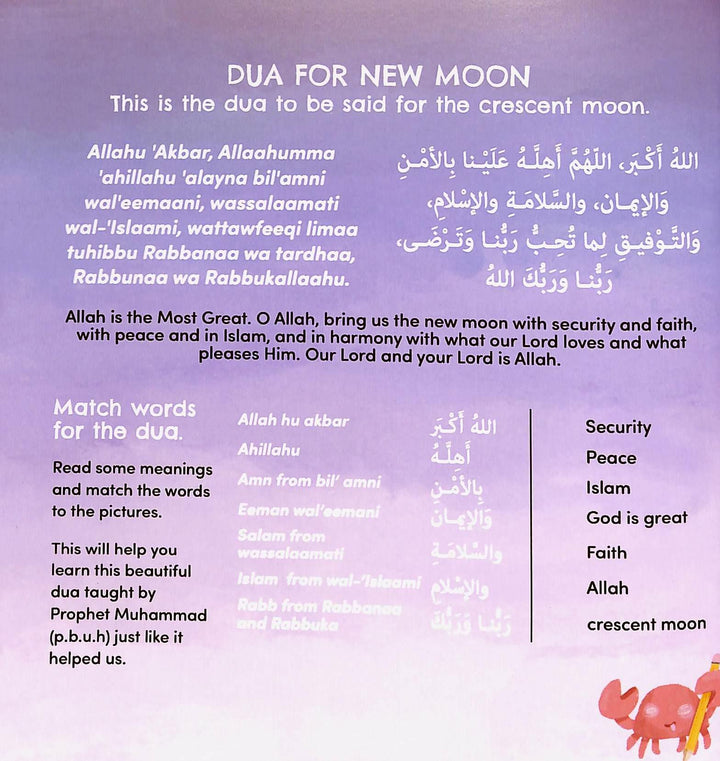 DUA FOR NEW MOON
This is the dua to be said for the crescent moon.
Allahu 'Akbar, Allaahumma
'ahillahu 'alayna bil'amni
wal'eemaani, wassalaamati
wal-'Islaami, wattawfeeqi limaa
tuhibbu Rabbanaa wa tardhaa,
Rabbunaa wa Rabbukallaahu.
اللهُ أَكْبَر، اللّهُمَّ أَهِلَّهُ عَلَيْنا بِالأمْنِ
وَالإيمان، والسَّلامَةِ والإسْلامِ،
وَالتَّوْفيقِ لِما تُحِبُّ رَبُّنا وَتَرْضَى،
رَبُّنا وَرَبُّكَ اللهُ
Allah is the Most Great. O Allah, bring us the new moon with security and faith,
with peace and in Islam, and in harmony with what our Lord loves and what
pleases Him. Our Lord and your Lord is Allah.
Match words
for the dua.
Read some meanings
and match the words
to the pictures.
This will help you
learn this beautiful
dua taught by
Prophet Muhammad
(p.b.u.h) just like it
helped us.
Allah hu akbar
Ahillahu
Amn from bil' amni
Eeman wal'eemani
Salam from
wassalaamati
Islam from wal-'Islaami
Rabb from Rabbanaa
and Rabbuka
اللهُ أَكْبَر
أَهِلَّهُ
بِالأمْنِ
وَالإيمان
والسَّلامَةِ
والإسْلامِ
رَبُّنا وَرَبُّكَ
Security
Peace
Islam
God is great
Faith
Allah
crescent moon